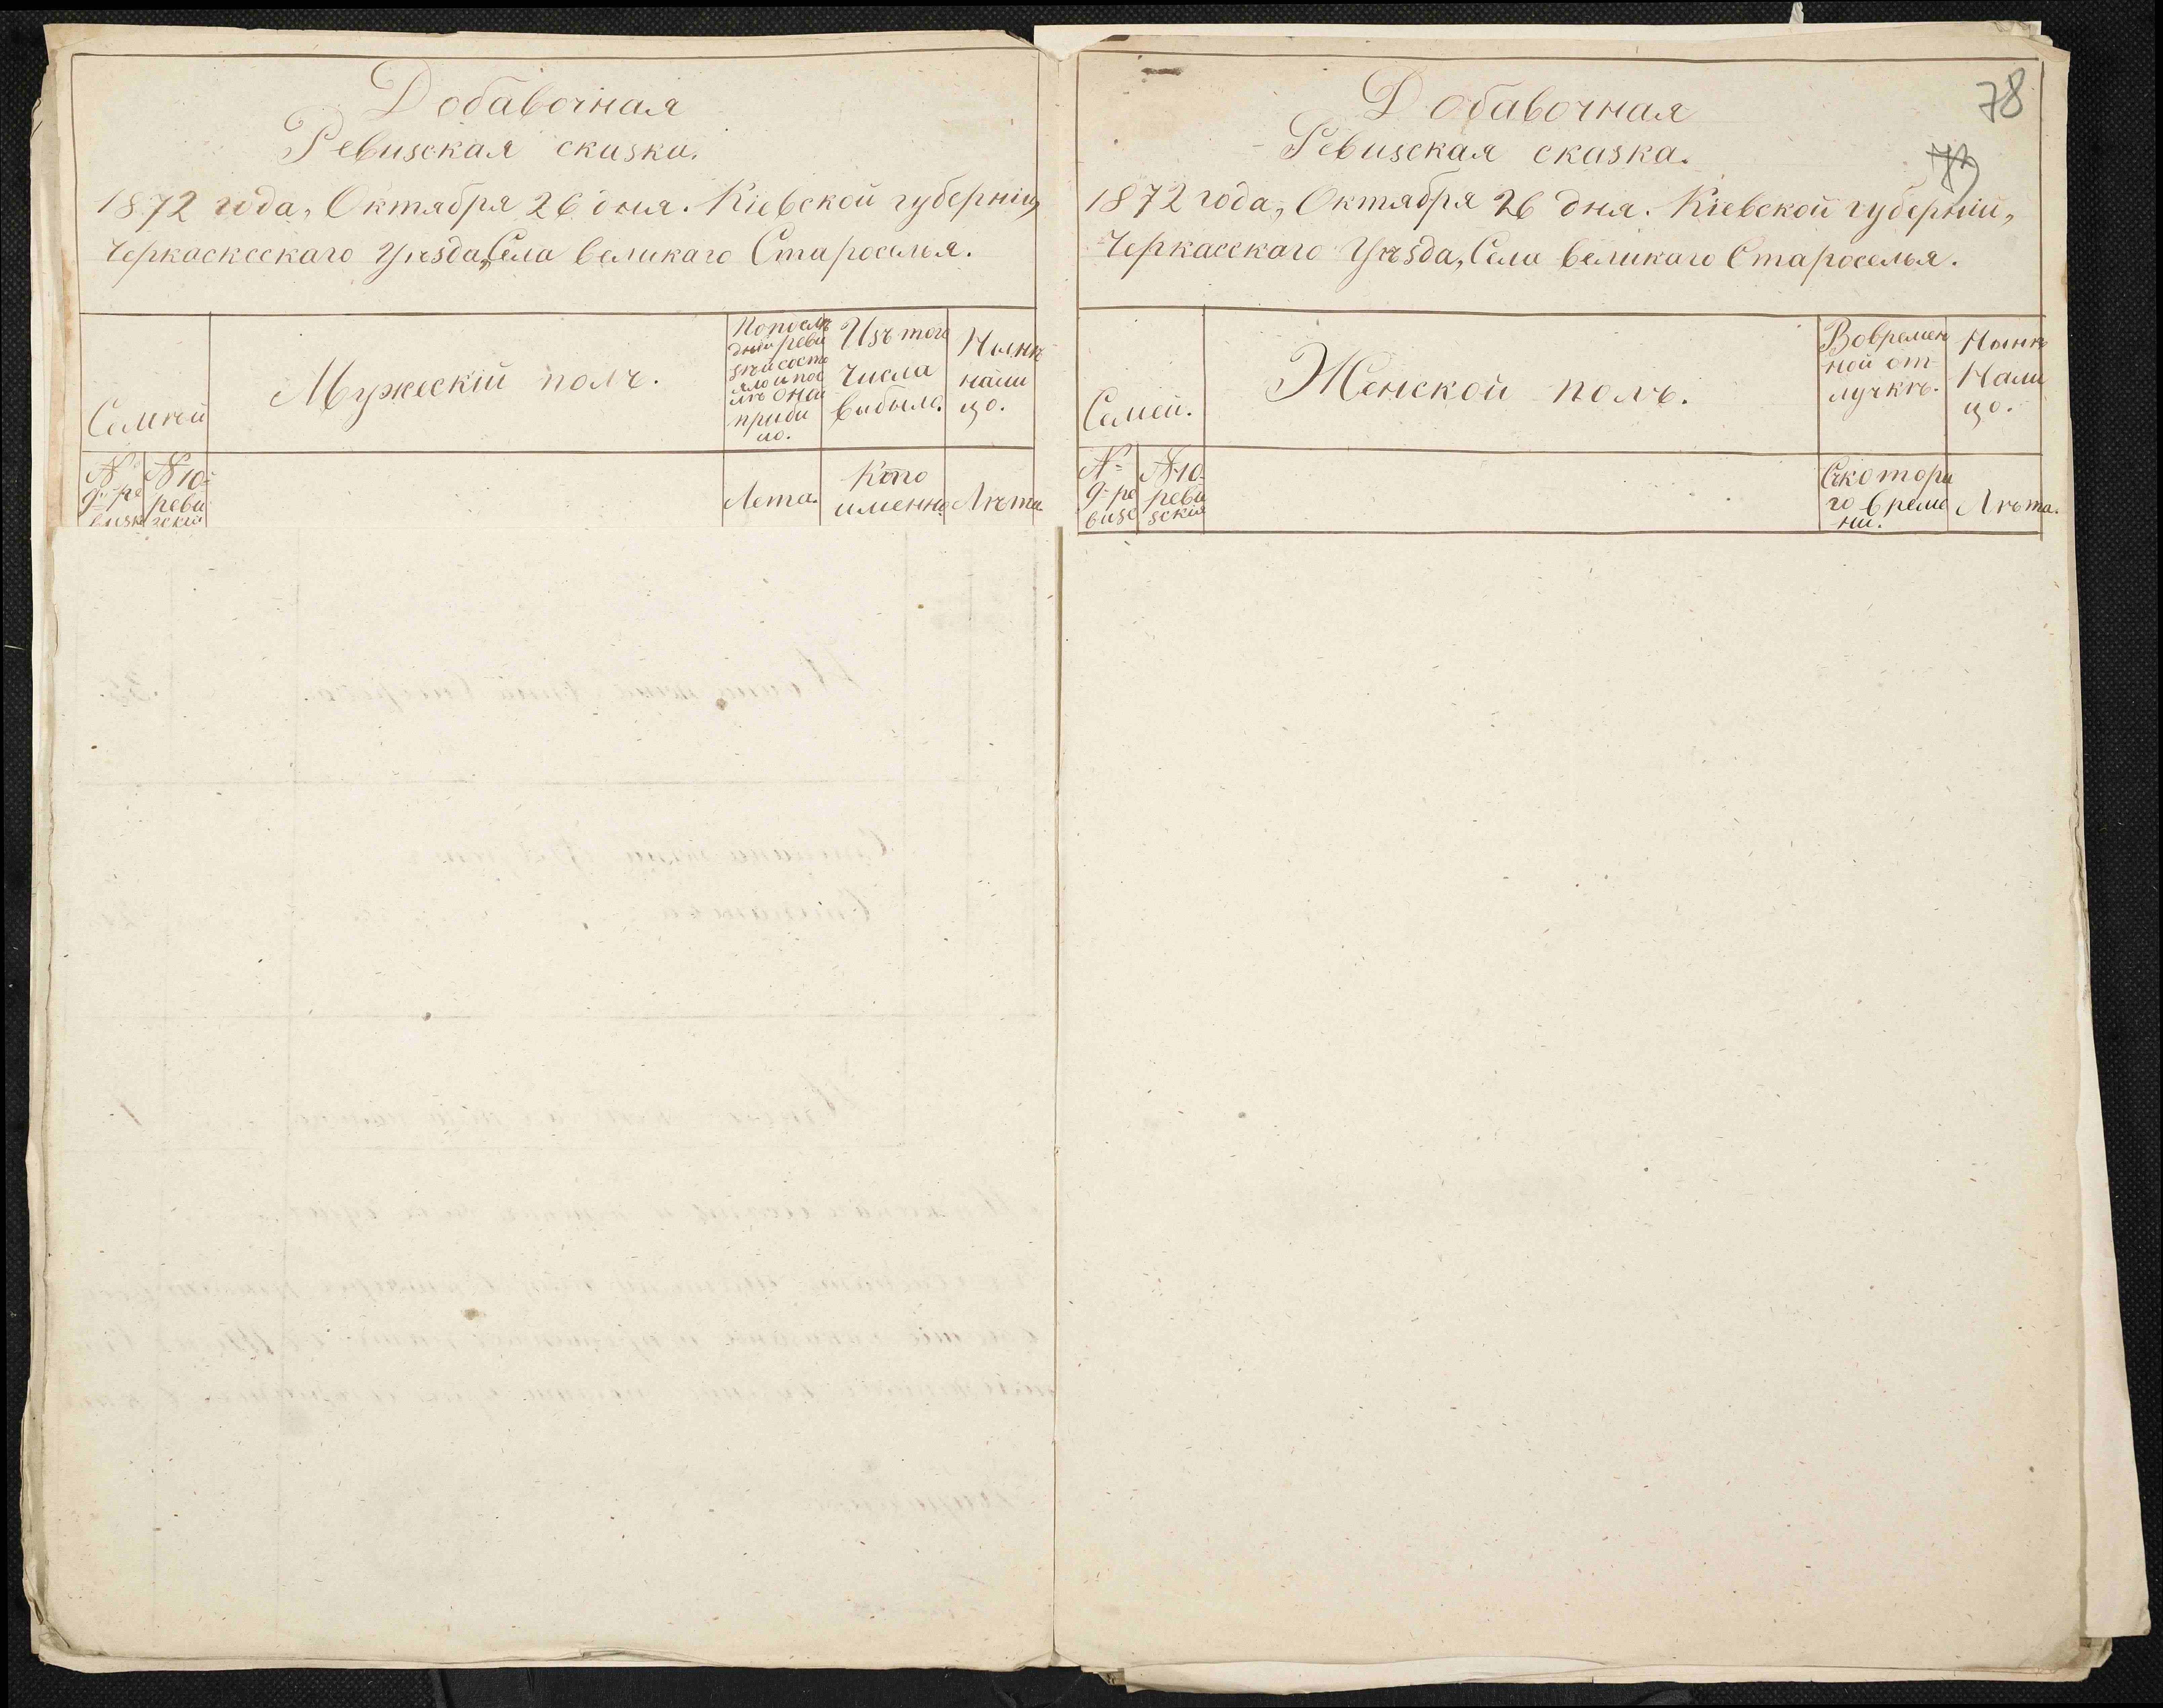 Добавочная
Ревизская сказка.
1872 года, Октября 26 дня. Кіевской губерніи,
Черкасксскаго Уѣзда, Села великаго Староселья.
Семѣй
Мужескій полъ.
Изъ того
числа
выбыло.
Нынѣ
нали
цо.
№
9-ре
визк
№ 10-
реви
зскій
Лета.
Кто
именно.
Лѣта
78
Добавочная
Ревизская сказка.
1872 года, Октября 26 дня. Кіевской губерніи,
Черкасскаго Уѣзда, Села великаго Староселья.
Семей.
Женской полъ.
Вовремен
ной от-
лучкѣ.
Нынѣ
Нали
цо.
№-
9-ре
визс
№10-
реви
зскія
Съкотора
го време
ни.
Лѣта.